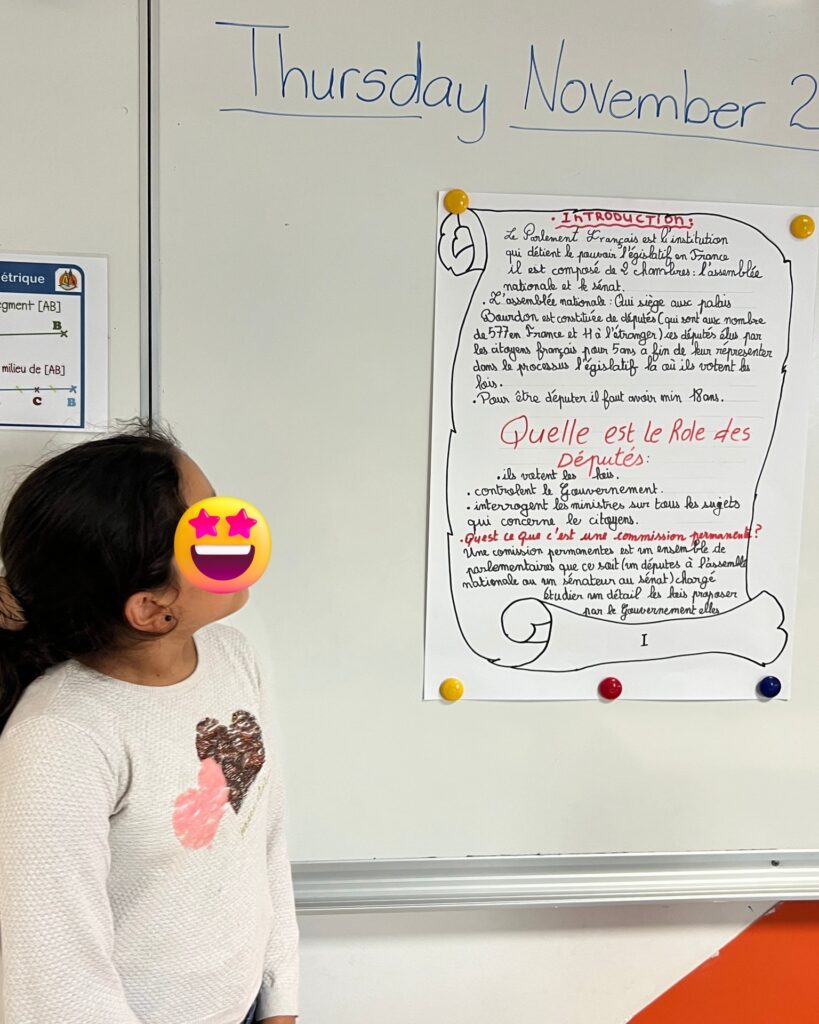 Thursday November 2
étrique
egment [AB]
B
milieu de [AB]
C B
• INTRODUCTION:
Le Parlement Français est l'institution
qui détient le pouvoir l'égislatif en France
il est composé de 2 chambres: l'assemblée
nationale et le sénat.
• L'assemblée nationale: Qui siège aux palais
Bourdon est constituée de députés (qui sont aux nombre
de 577 en France et 11 à l'étranger) ces députés élus par
les citoyens français pour 5ans a fin de leur répresenter
dans le processus l'égislatif la où ils votent les
lois.
• Pour être députer il faut avoir min 18ans.
Quelle est le Role des
Députés:
• ils votent les lois.
• controlent le Gouvernement.
• interrogent les ministres sur tous les sujets
qui concerne le citoyens.
• Quest ce que c'est une commission permanente?
Une comission permanentes est un ensemble de
parlementaires que ce soit (un députes à l'assemblé
nationale ou un sénateur au sénat) chargé
étudier un détail les lois proposer
par le Gouvernement elles
I